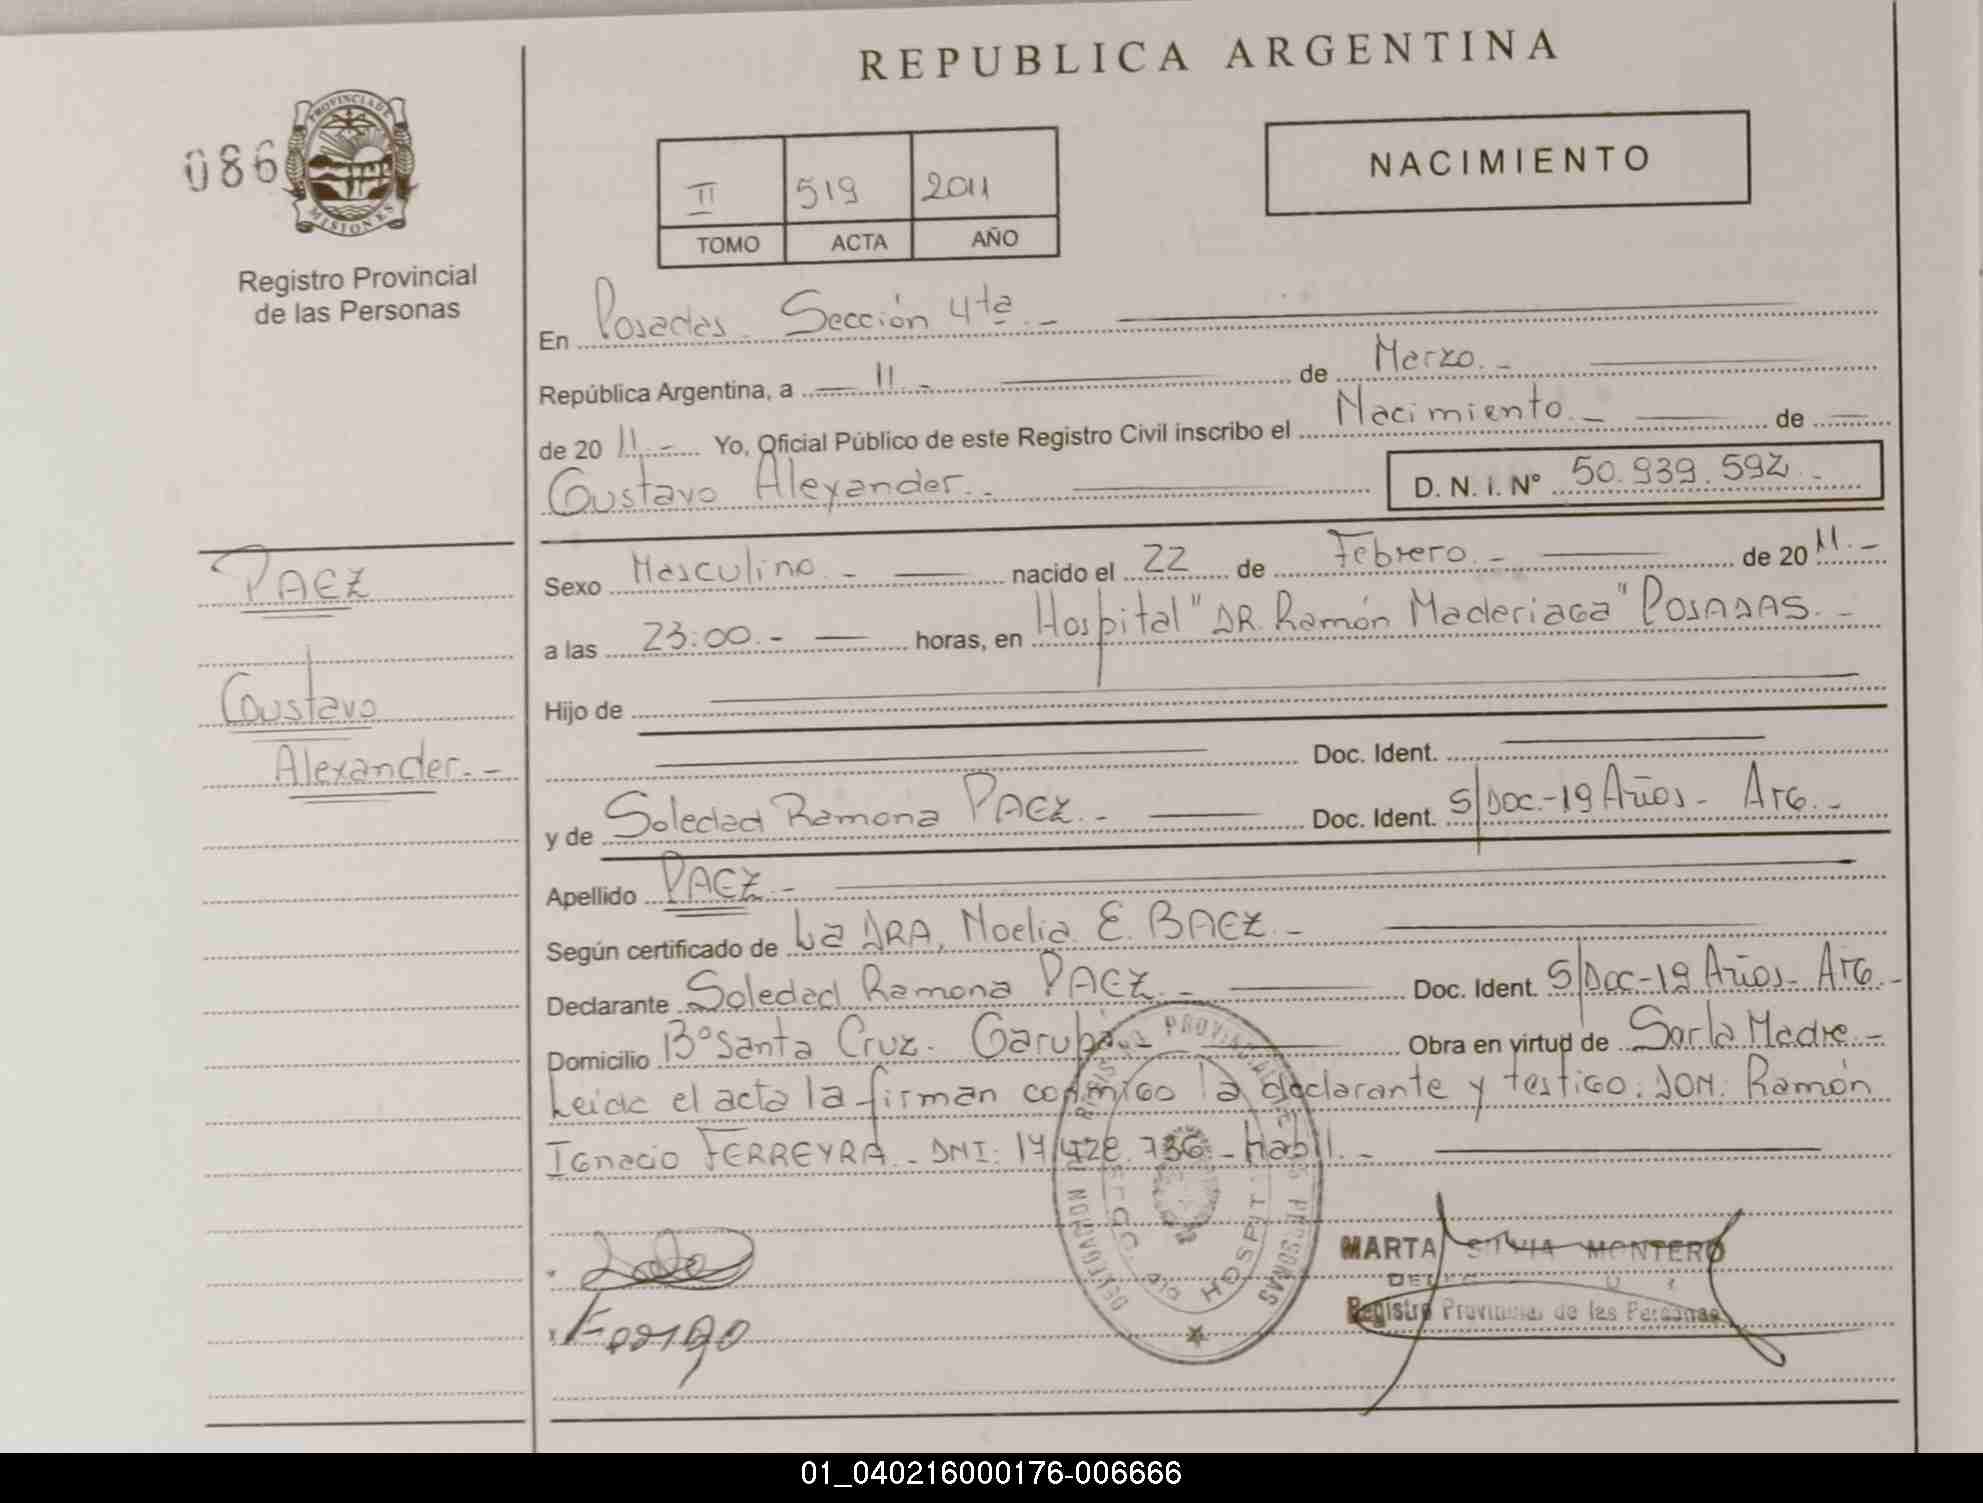 REPUBLICA ARGENTINA
086
PROVINCIA DE
MISIONES
Registro Provincial
de las Personas
II 519 2011
TOMO ACTA AÑO
NACIMIENTO
En Posadas. Sección 4ta.-
República Argentina, a 11.- de Marzo.-
de 2011.- Yo, Oficial Público de este Registro Civil inscribo el Nacimiento.- de
Gustavo Alexander.- D. N. I. Nº 50.939.592.-
PAEZ
Gustavo
Alexander.-
Sexo Masculino.- nacido el 22 de Febrero.- de 2011.-
a las 23:00.- horas, en Hospital "DR. Ramón Maderiaga" POSADAS.-
Hijo de
Doc. Ident.
y de Soledad Ramona PAEZ.- Doc. Ident. S/Doc.-19 Años- Arg.-
Apellido PAEZ.-
Según certificado de La DRA, Noelia E. BAEZ.-
Declarante Soledad Ramona PAEZ.- Doc. Ident. S/Doc-19 Años- Arg.-
Domicilio Bº Santa Cruz. Garupá.- Obra en virtud de Ser la Madre.-
Leida el acta la firman conmigo la declarante y testigo: DON: Ramón
Ignacio FERREYRA.- DNI: 17.428.736- Habil.-
DELEGACION REGISTRO PROVINCIAL DE LAS PERSONAS
HOSPIT.
MARTA SILVIA MONTERO
Registro Provincial de las Personas
01_040216000176-006666